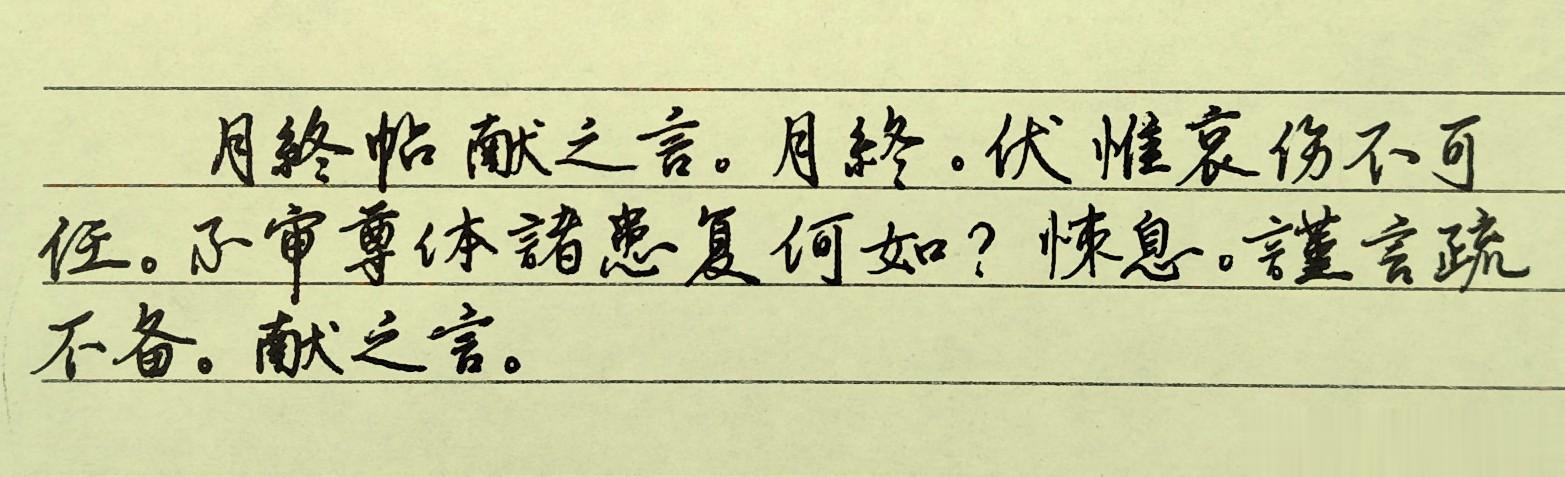 月終帖 献之言。月終。伏惟哀伤不可
任。不审尊体諸患复何如？悚息。謹言疏
不备。献之言。